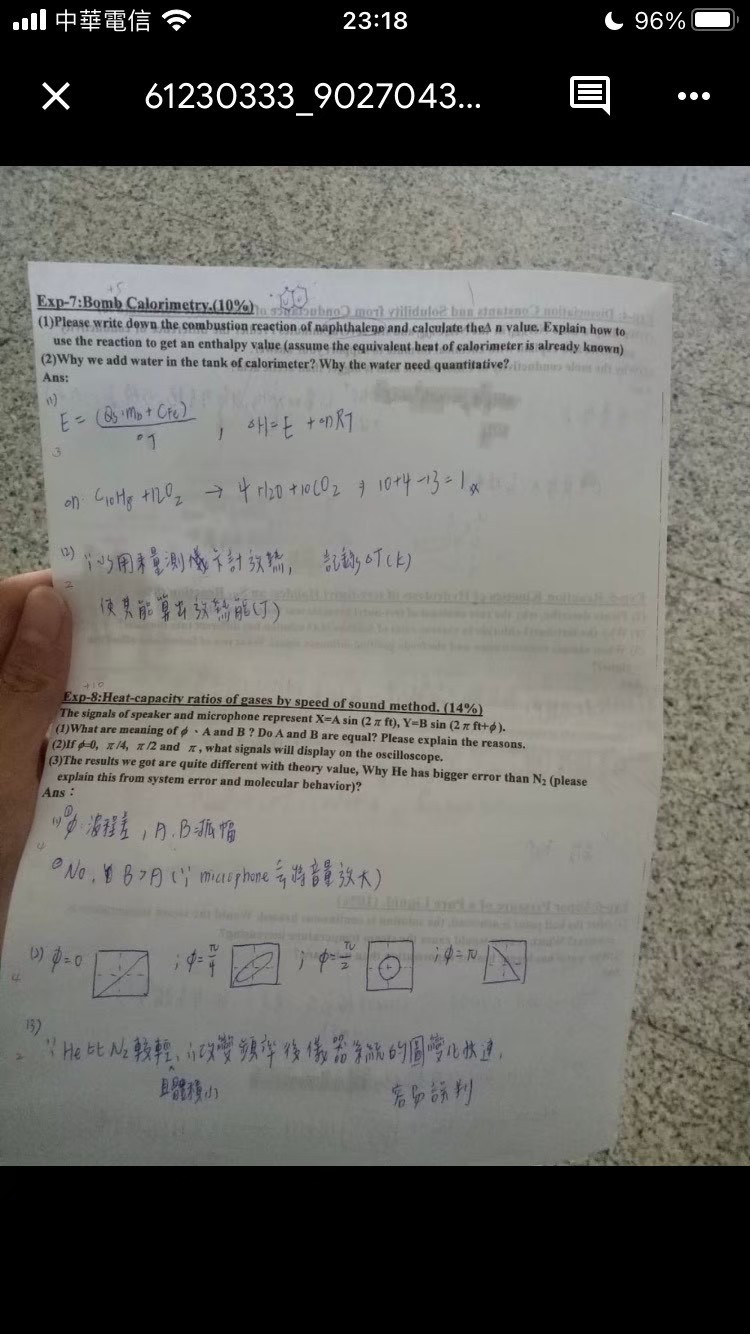 中華電信
23:18
96%
61230333_9027043...
+5
Exp-7:Bomb Calorimetry.(10%)
(1)Please write down the combustion reaction of naphthalene and calculate theΔ n value. Explain how to
use the reaction to get an enthalpy value (assume the equivalent heat of calorimeter is already known)
(2)Why we add water in the tank of calorimeter? Why the water need quantitative?
Ans:
(1)
E = (Qb·mb + Cfe) / ΔT , ΔH = E + ΔnRT
3
Δn: C10H8 + 12O2 → 4H2O + 10CO2 ; 10+4-13=1
(2) 用來量測儀卡計放熱, 記錄ΔT(K)
2
使其能算出放熱能(J)
+10
Exp-8:Heat-capacity ratios of gases by speed of sound method. (14%)
The signals of speaker and microphone represent X=A sin (2 π ft), Y=B sin (2 π ft+ϕ).
(1)What are meaning of ϕ、A and B ? Do A and B are equal? Please explain the reasons.
(2)If ϕ=0, π/4, π/2 and π, what signals will display on the oscilloscope.
(3)The results we got are quite different with theory value, Why He has bigger error than N2 (please
explain this from system error and molecular behavior)?
Ans：
(1) ① ϕ: 波程差, A.B=振幅
② No, B>A (∵ microphone 會將音量放大)
(2) ϕ=0 ; ϕ=π/4 ; ϕ=π/2 ; ϕ=π
4
(3)
∵ He比N2較輕, ∴改變頻率後儀器系統的圖變化快速,
2
且體積小 容易誤判